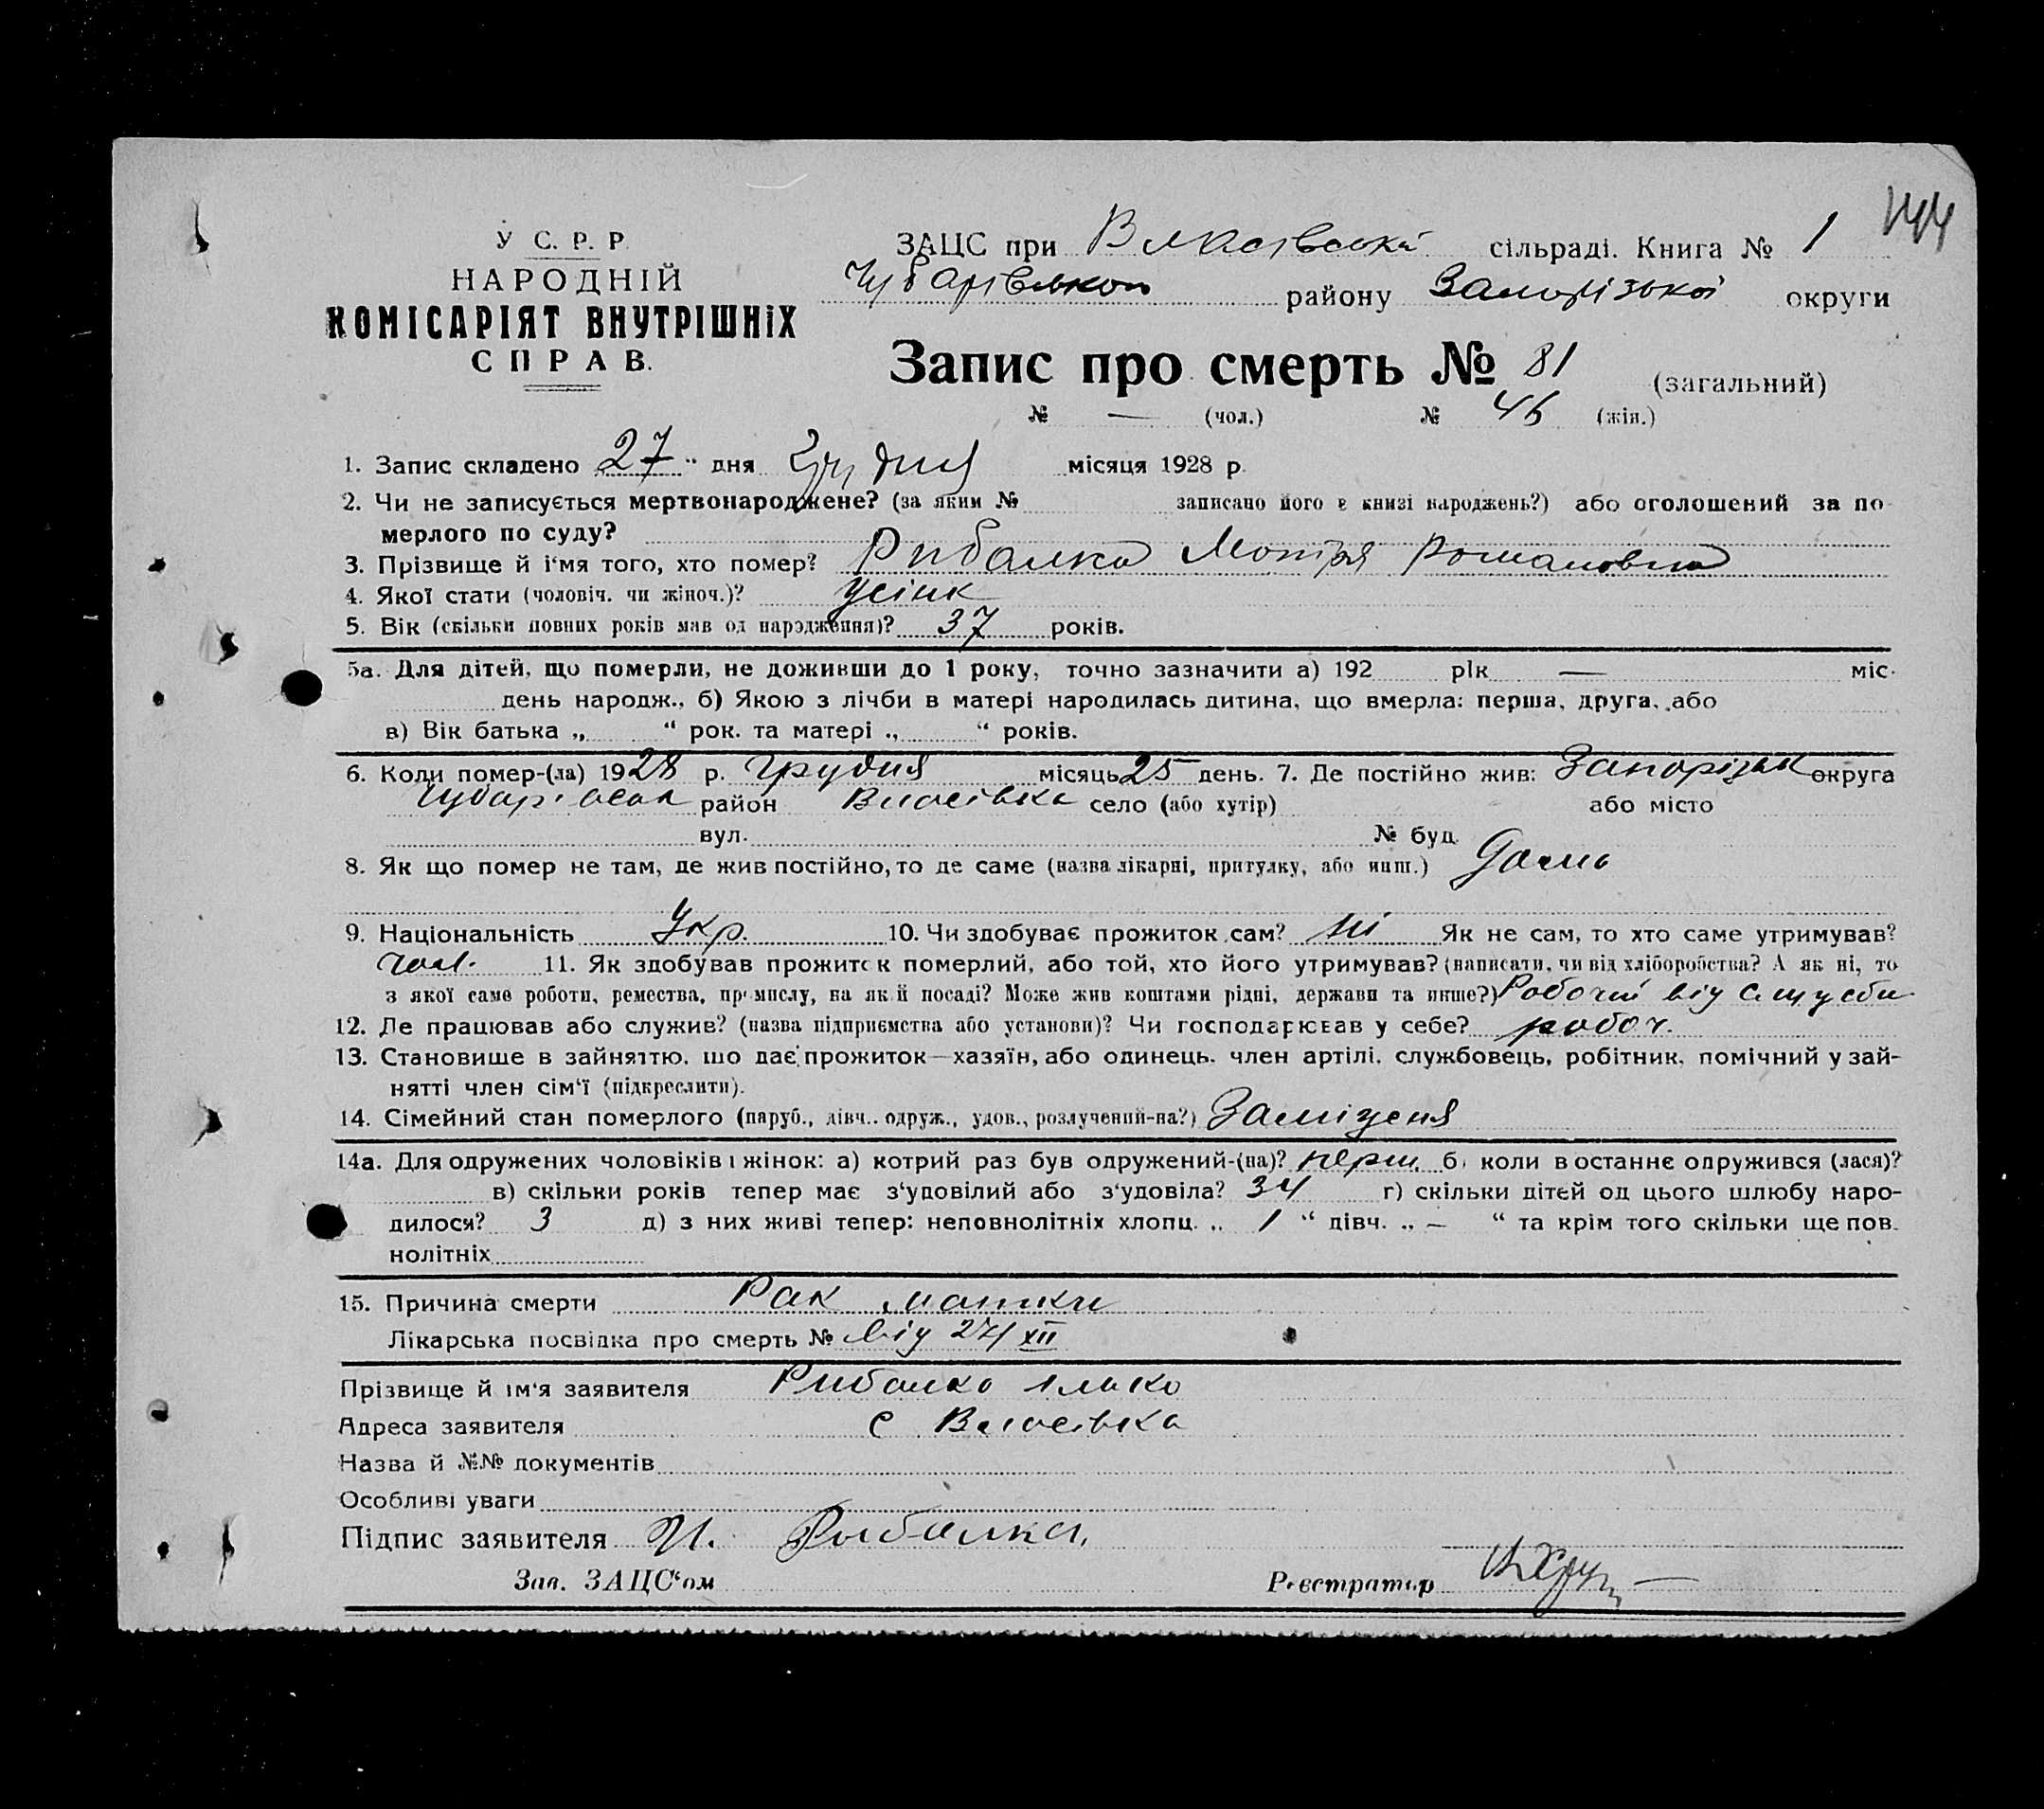 144
У С. Р. Р.
НАРОДНІЙ
КОМІСАРІЯТ ВНУТРІШНІХ
СПРАВ.
ЗАЦС при Власівській сільраді. Книга № 1
Чубарівського району Запорізької округи
Запис про смерть № 81 (загальний)
№ — (чол.) № 46 (жін.)
1. Запис складено 27 " дня Грудня місяця 1928 р.
2. Чи не записується мертвонароджене? (за яким № записано його в книзі народжень?) або оголошений за по-
мерлого по суду?
3. Прізвище й і'мя того, хто помер? Рибалка Мотря Романовна
4. Якої стати (чоловіч. чи жіноч.)? жінк
5. Вік (скільки повних років мав од народження)? 37 років.
5а. Для дітей, що померли, не доживши до 1 року, точно зазначити а) 192 рік — міс.
день народж., б) Якою з лічби в матері народилась дитина, що вмерла: перша, друга, або
в) Вік батька „ “ рок. та матері „ “ років.
6. Коли помер-(ла) 1928 р. Грудня місяць 25 день. 7. Де постійно жив: Запорізьк округа
район Власівка село (або хутір) або місто
вул. № буд.
8. Як що помер не там, де жив постійно, то де саме (назва лікарні, притулку, або инш.) Дома
9. Національність Укр. 10. Чи здобуває прожиток сам? ні Як не сам, то хто саме утримував?
чол. 11. Як здобував прожиток померлий, або той, хто його утримував? (написати, чи від хліборобства? А як ні, то
з якої саме роботи, ремества, промислу, на якій посаді? Може жив коштами рідні, держави та инше?) Робочий від служби
12. Де працював або служив? (назва підприємства або установи)? Чи господарював у себе? робоч.
13. Становище в зайняттю, що дає прожиток—хазяїн, або одинець, член артілі, службовець, робітник, помічний у зай-
нятті член сім'ї (підкреслити).
14. Сімейний стан померлого (паруб., дівч., одруж., удов., розлучений-на?) Заміжня
14а. Для одружених чоловіків і жінок: а) котрий раз був одружений-(на)? перш. б) коли в останнє одружився (лася)?
в) скільки років тепер має з'удовілий або з'удовіла? 34 г) скільки дітей од цього шлюбу наро-
дилося? 3 д) з них живі тепер: неповнолітніх хлопц. „ 1 “ дівч. „ — “ та крім того скільки ще пов-
нолітніх
15. Причина смерти Рак матки
Лікарська посвідка про смерть № від 27/XII
Прізвище й ім'я заявителя Рибалко Ілько
Адреса заявителя с Власівка
Назва й №№ документів
Особливі уваги
Підпис заявителя И. Рыбалка,
Зав. ЗАЦС'ом Реєстратор